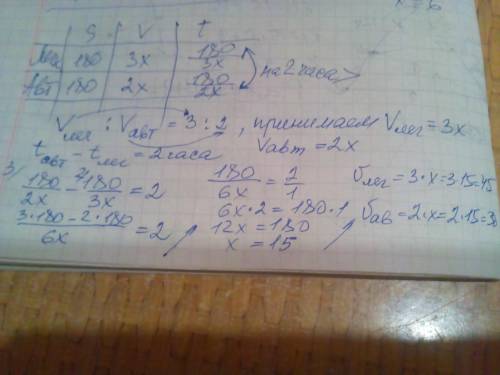 x = 6
S | V | t
Лег | 180 | 3x | 180/3x
Авт | 180 | 2x | 180/2x
на 2 часа >
Vлег : Vавт = 3 : 2 , принимаем Vлег = 3x
Vавт = 2x
tавт - tлег = 2 часа
3/ 180/2x - 2/ 180/3x = 2
(3·180 - 2·180)/6x = 2
180/6x = 2/1
6x·2 = 180·1
12x = 180
x = 15
Vлег = 3·x = 3·15 = 45
Vав = 2·x = 2·15 = 30